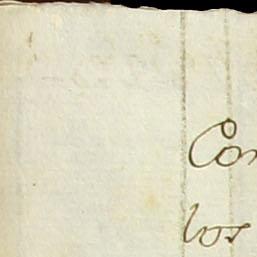 Con
los